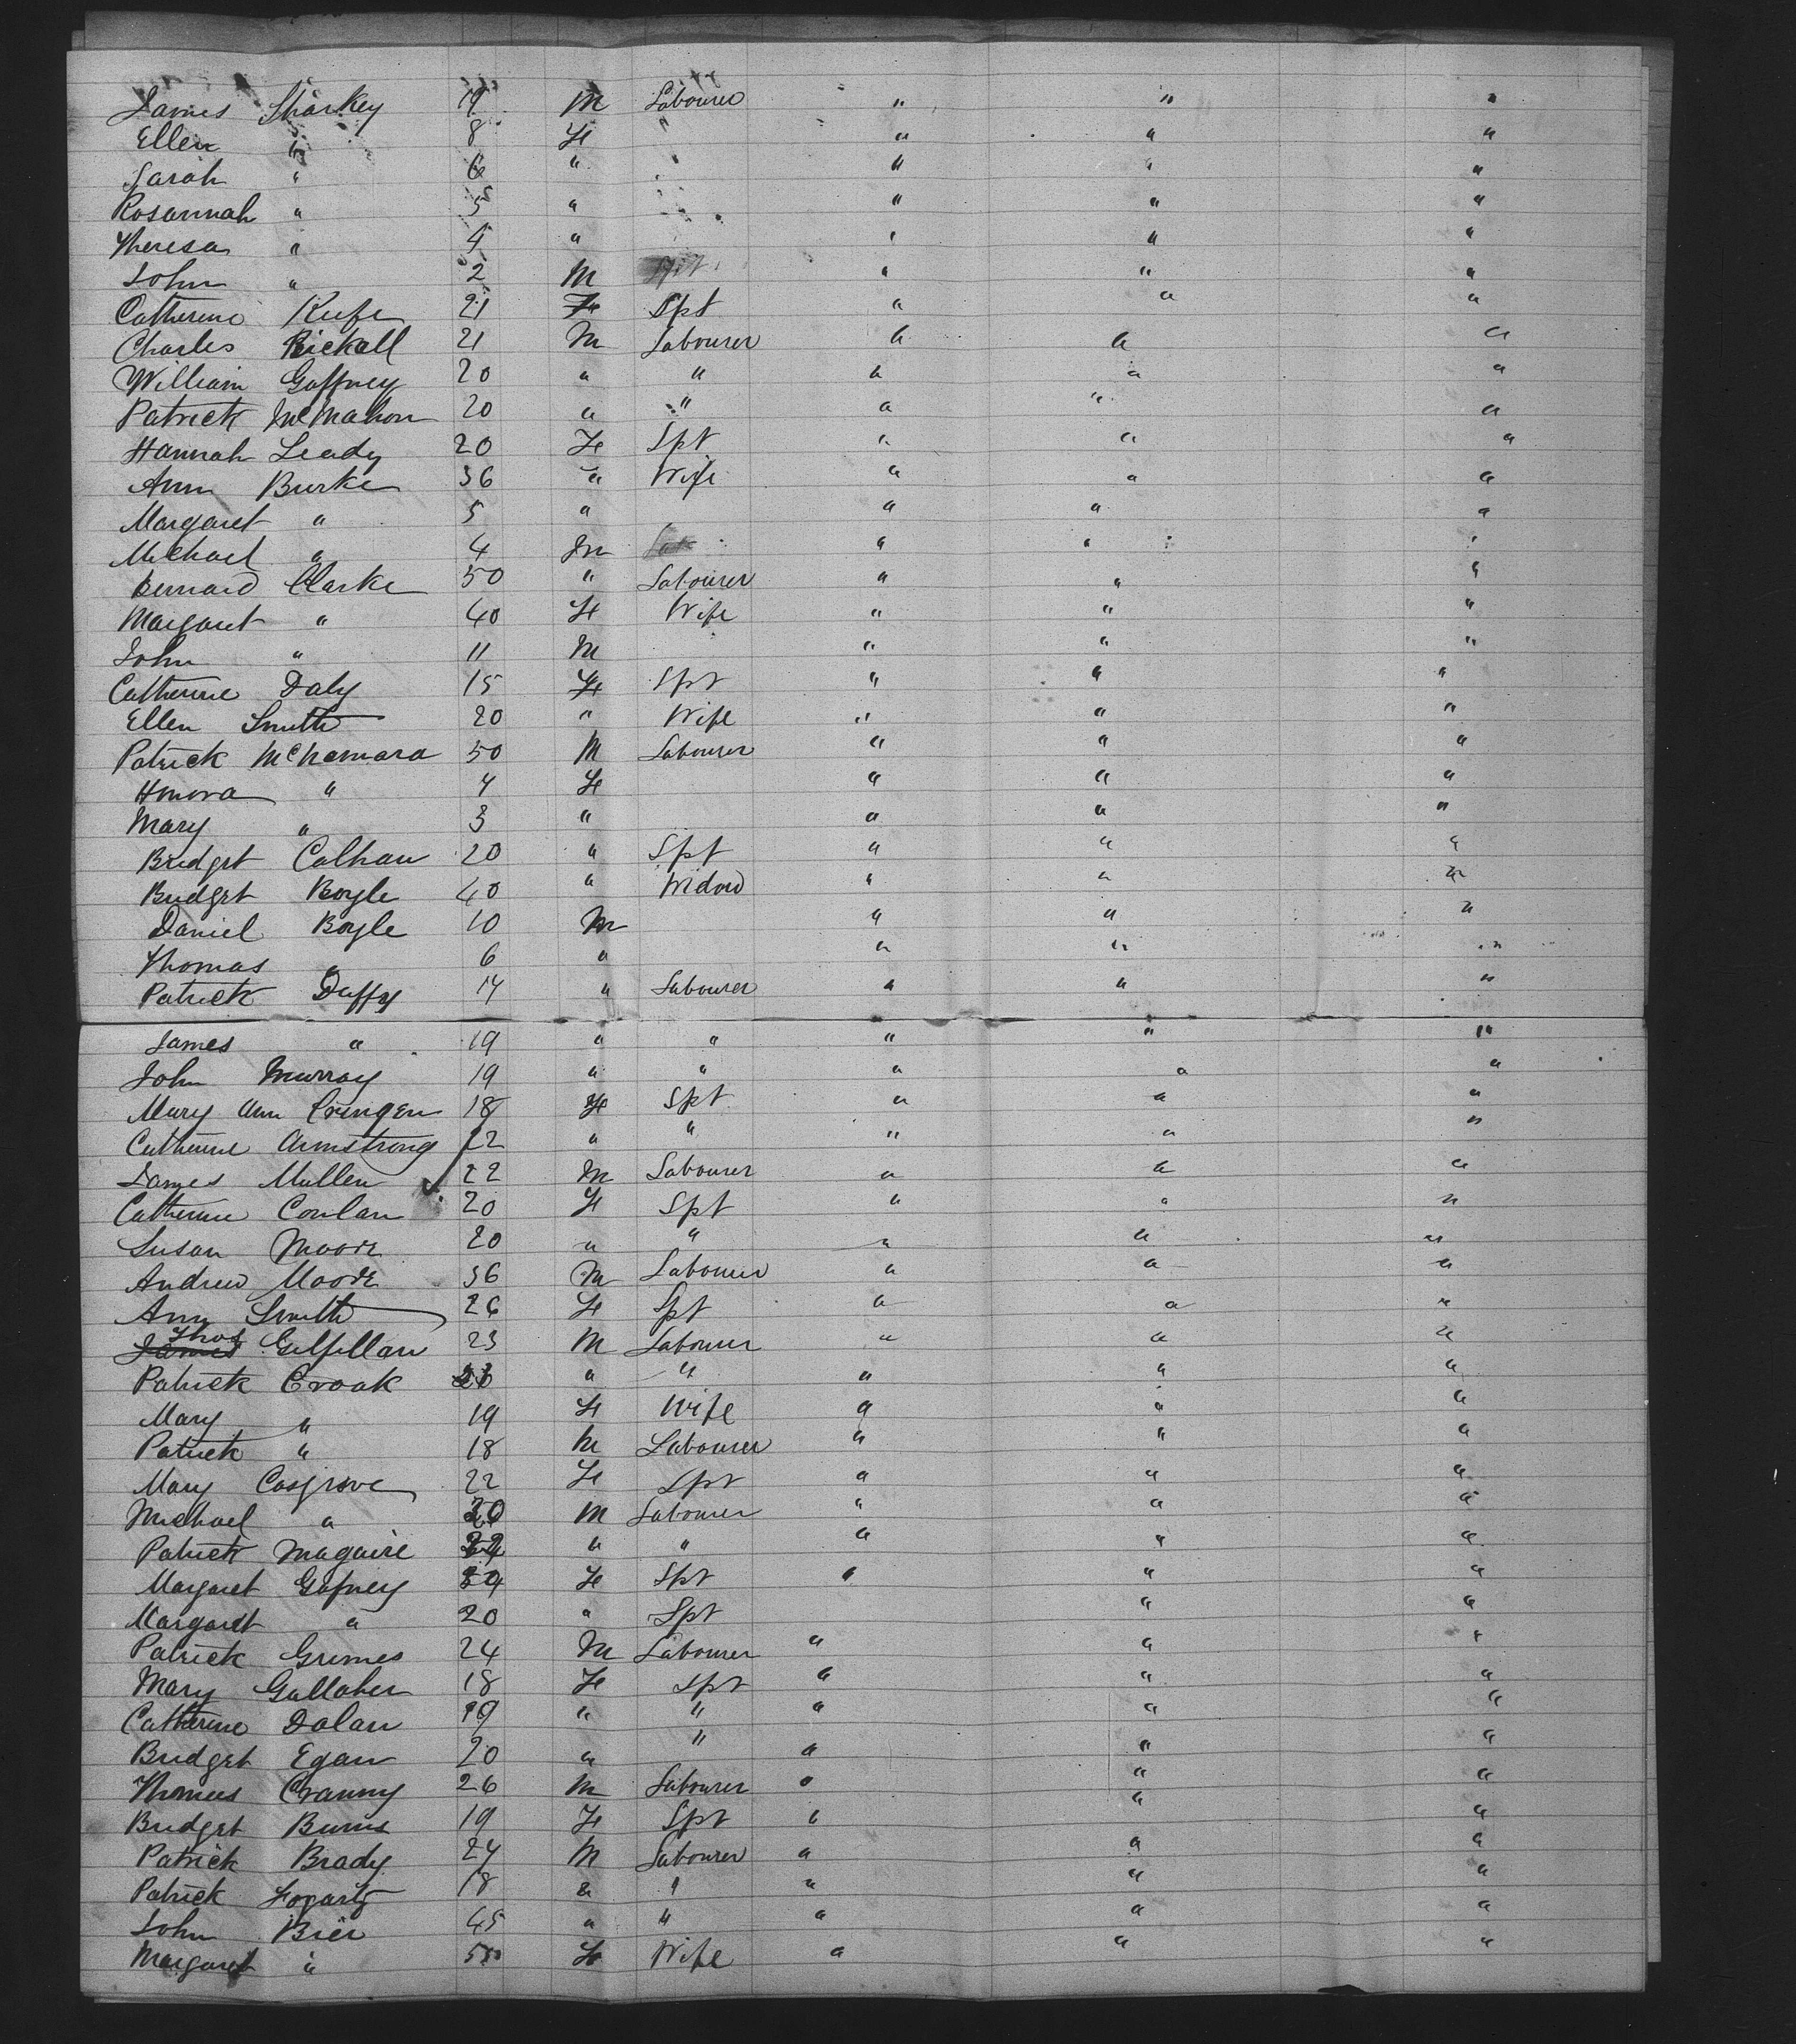 James Sharkey 19 M Labourer " " "
Ellen " 8 Fe " " "
Sarah " 6 " " " "
Rosannah " 5 " " " "
Theresa " 4 " " " "
John " 2 M " " "
Catherine Keefe 21 Fe Spt " " "
Charles Bickell 21 M Labourer " " "
William Gaffney 20 " " " " "
Patrick McMahon 20 " " " " "
Hannah Leady 20 Fe Spt " " "
Ann Burke 36 " Wife " " "
Margaret " 5 " " " "
Michael " 4 M " " "
Bernard Clarke 50 " Labourer " " "
Margaret " 40 Fe Wife " " "
John " 11 M " " "
Catherine Daly 15 Fe Spt " " "
Ellen Smith 20 " Wife " " "
Patrick McNamara 50 M Labourer " " "
Honora " 4 Fe " " "
Mary " 3 " " " "
Bridget Calhan 20 " Spt " " "
Bridget Boyle 40 " Widow " " "
Daniel Boyle 10 M " " "
Thomas " 6 " " " "
Patrick Duffy 14 " Labourer " " "
James " 19 " " " " "
John Murray 19 " " " " "
Mary Ann Cringen 18 Fe Spt " " "
Catherine Armstrong 22 " " " " "
James Mullen 22 M Labourer " " "
Catherine Conlan 20 Fe Spt " " "
Susan Moore 20 " " " " "
Andrew Moore 36 M Labourer " " "
Ann Smith 26 Fe Spt " " "
Thos
James Gilfillan 23 M Labourer " " "
Patrick Croak " " " " "
Mary " 19 Fe Wife " " "
Patrick " 18 M Labourer " " "
Mary Cosgrove 22 Fe Spt " " "
Michael " M Labourer " " "
Patrick Maguire " " " " "
Margaret Gafney Fe Spt " " "
Margaret " 20 " Spt " "
Patrick Grimes 24 M Labourer " " "
Mary Gallaher 18 Fe Spt " " "
Catherine Dolan 19 " " " " "
Bridget Egan 20 " " " " "
Thomas Cranny 26 M Labourer " " "
Bridget Burns 19 Fe Spt " " "
Patrick Brady 24 M Labourer " " "
Patrick Fogarty 18 " " " " "
John Bier 45 " " " " "
Margaret " Fe Wife " " "